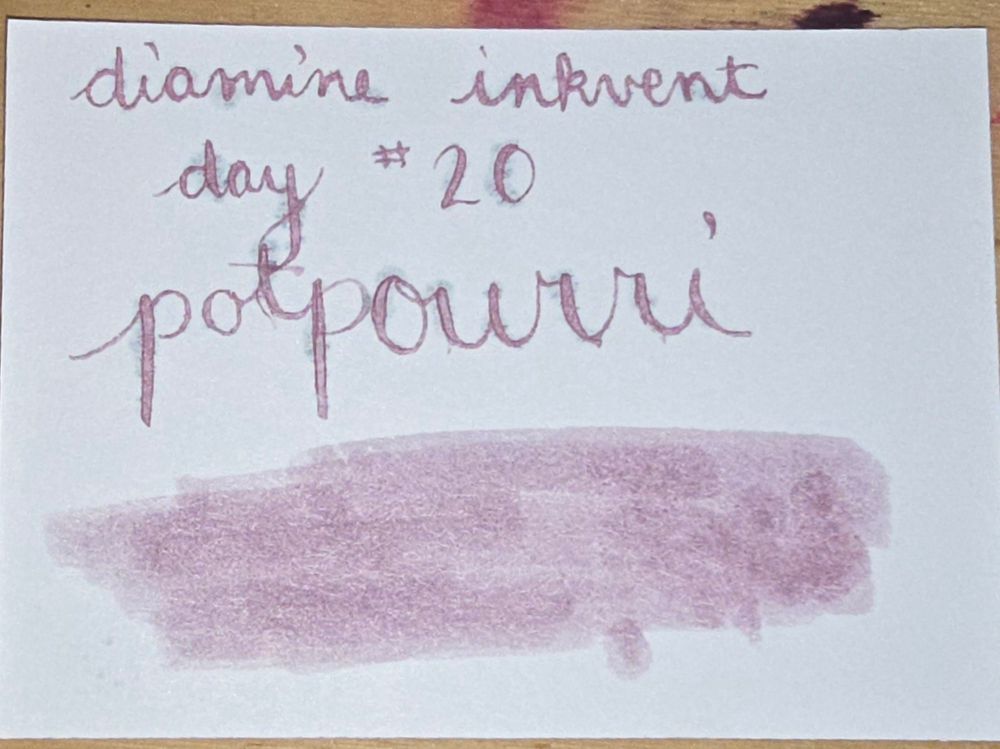 diamine inkvent
day #20
potpourri